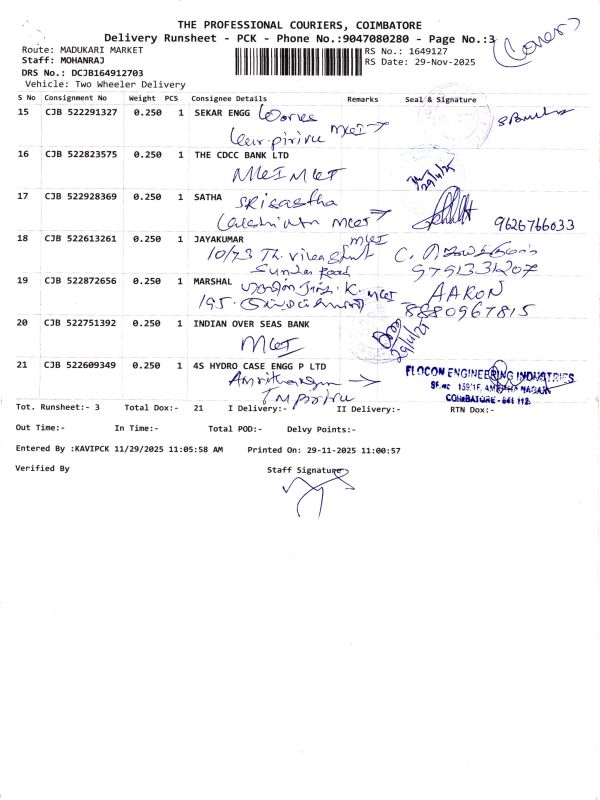 THE PROFESSIONAL COURIERS, COIMBATORE
Delivery Runsheet - PCK - Phone No.:9047080280 - Page No.:3
(Cover)
Route: MADUKARI MARKET
RS No.: 1649127
Staff: MOHANRAJ
RS Date: 29-Nov-2025
DRS No.: DCJB164912703
Vehicle: Two Wheeler Delivery
S No Consignment No Weight PCS Consignee Details Remarks Seal & Signature
15 CJB 522291327 0.250 1 SEKAR ENGG
MKT
16 CJB 522823575 0.250 1 THE CDCC BANK LTD
MKT MKT
29/11/25
17 CJB 522928369 0.250 1 SATHA
Srisastha
MKT 9626766033
18 CJB 522613261 0.250 1 JAYAKUMAR MKT
10/73
Sundar Road 9791331207
19 CJB 522872656 0.250 1 MARSHAL K. MKT AARON
195. 8880967815
20 CJB 522751392 0.250 1 INDIAN OVER SEAS BANK
MKT
29/11/25
21 CJB 522609349 0.250 1 4S HYDRO CASE ENGG P LTD
FLOCON ENGINEERING INDUSTRIES
COIMBATORE - 641 112.
Tot. Runsheet:- 3 Total Dox:- 21 I Delivery:- II Delivery:- RTN Dox:-
Out Time:- In Time:- Total POD:- Delvy Points:-
Entered By :KAVIPCK 11/29/2025 11:05:58 AM Printed On: 29-11-2025 11:00:57
Verified By Staff Signature